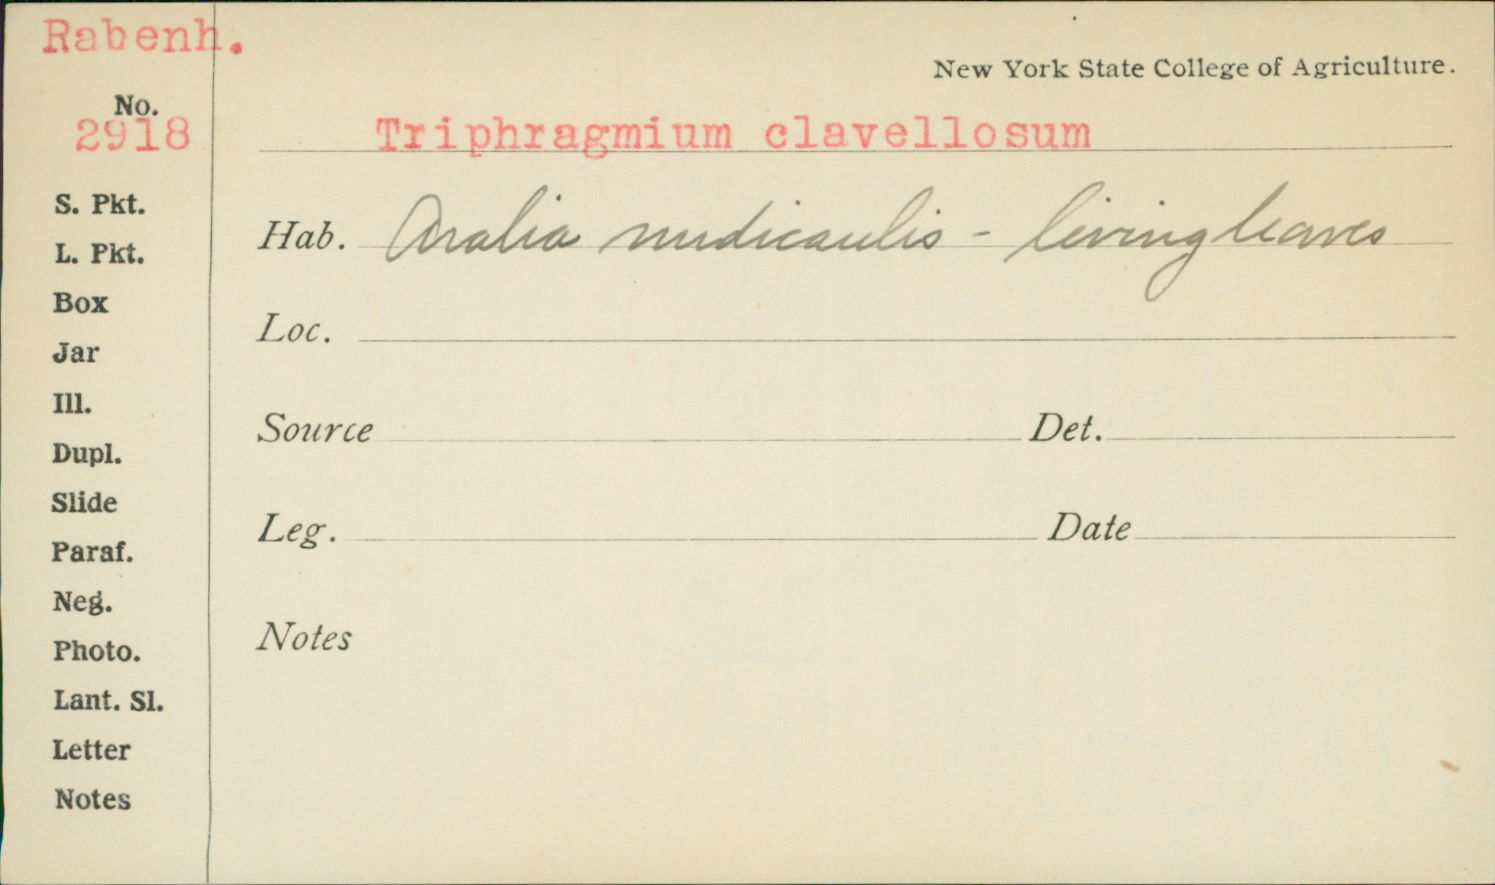 Rabenh.
New York State College of Agriculture.
No.
2918
Triphragmium clavellosum
S. Pkt.
Hab. Aralia nudicaulis - living leaves
L. Pkt.
Box
Loc.
Jar
Ill.
Source Det.
Dupl.
Slide
Leg. Date
Paraf.
Neg.
Notes
Photo.
Lant. Sl.
Letter
Notes